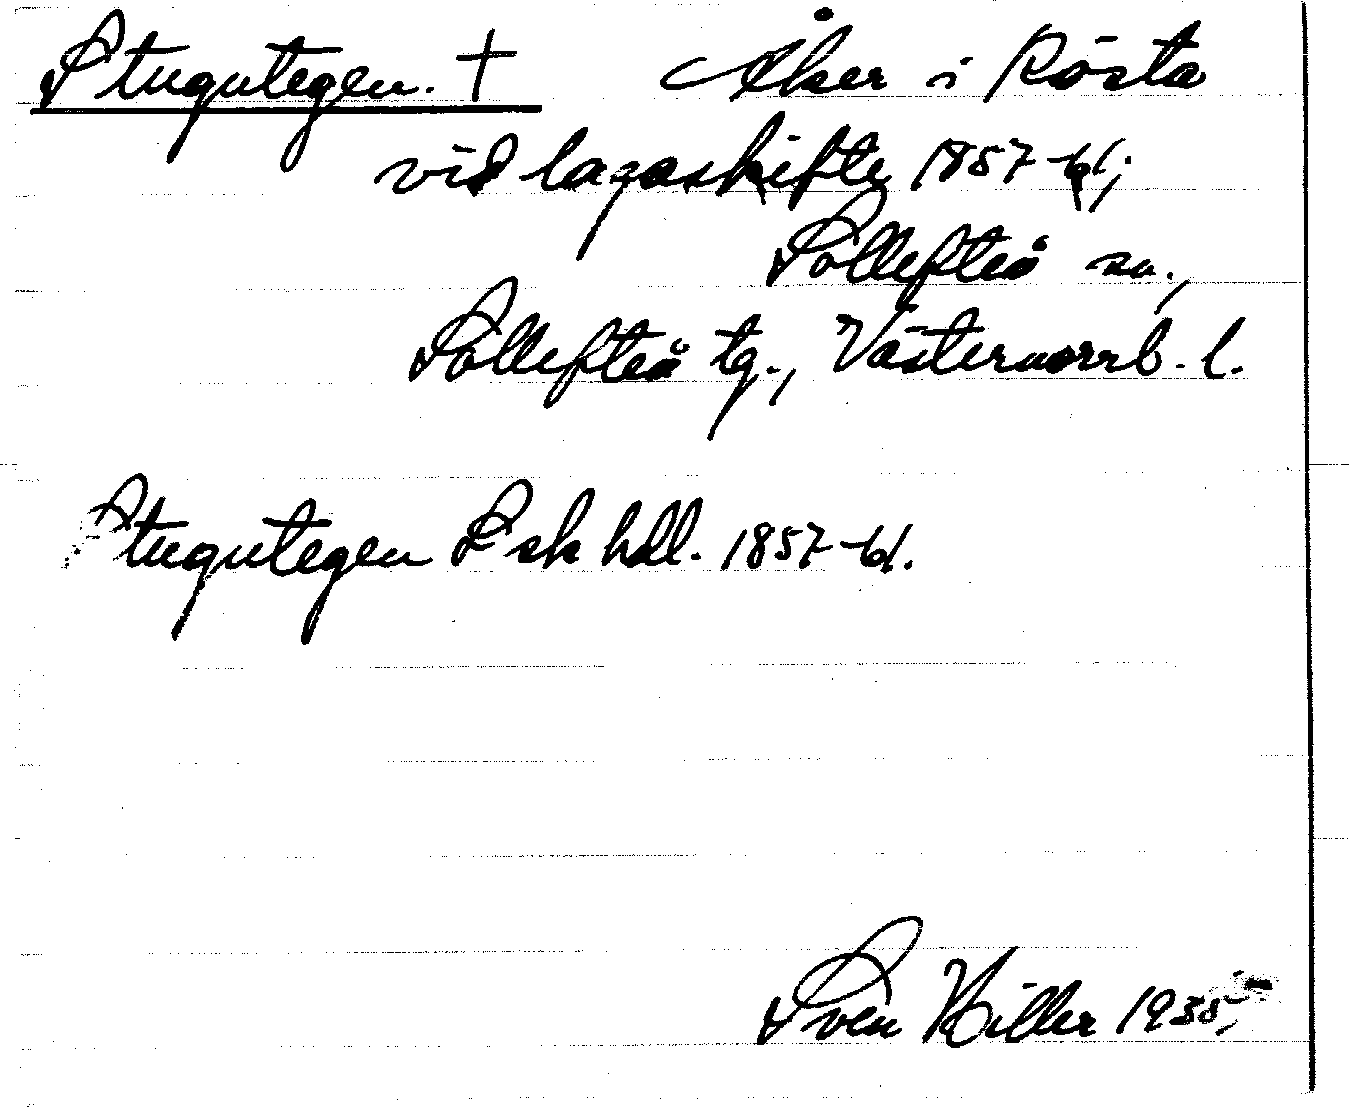 Stugutegen. † Åker i Rösta
vid lagaskifte 1857-61;
Sollefteå sn.,
Sollefteå tg., Västernorrb. l.
Stugutegen Lsk hdl. 1857-61.
Sven Hiller 1935,